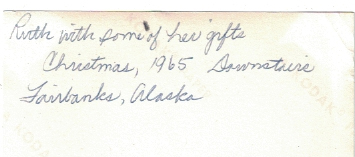 Ruth with some of her gifts
Christmas, 1965 Downstairs
Fairbanks, Alaska
KODAK
KODAK